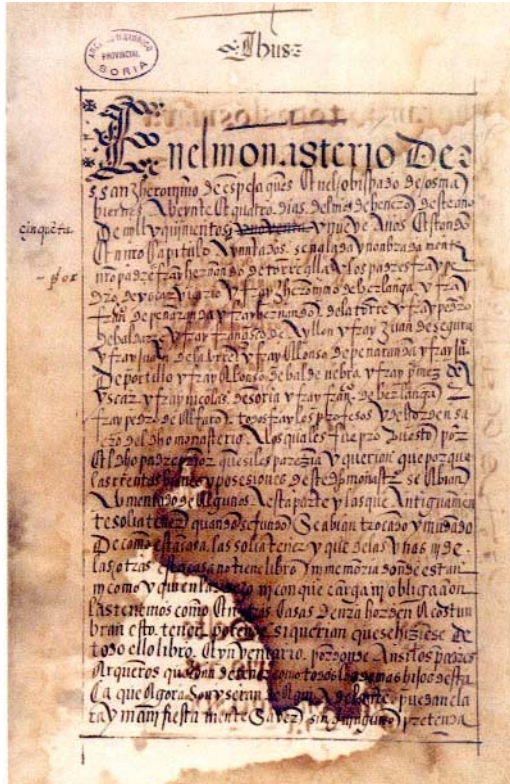 ARCHIVO HISTÓRICO
PROVINCIAL
SORIA
Jhus
En el monasterio De
san Jheronimo de espeja ques En el obispado de osma
biernes Veynte Et quatro dias del mes de henero deste año
De mill y quinientos y noventa y nueve Años Estando
cinquēta
En nro Capitulo Ayuntados señalada y nonbrada mente
por
nro padre fray hernando de torre y los padres fray pe
dro de vicario y fray Jheronimo de berlanga y fray
frān de penaranda y fray hernando de la torre y fray pedro
de baldas y fray frānsco de Ayllon y fray Juan de segura
y fray de la y fray Alonso de penaranda y fray Ju
De portillo y fray Alonso de balde nebra y fray
y fray nicolas de soria y fray frān de berlanga
fray pedro de Alfaro todos frayles profesos y de horden sa
cro del dho monasterio A los quales fue pro puesto por
El dho padre prior que si les parezia y querian que porque
las rrentas bienes y posesiones de este monast se Abian
Aumentado de Algunos A esta parte y las que Antiguamen
te solia tener quando se fundo Se abian trocado y mudado
De como esta casa las solia tener y que de las vnas ni de
las otras esta casa no tiene libro ni memoria donde estan
ni como y quien ni con que carga ni obligacion
las tenemos como En otras Casas de nra horden Acostun
bran esto tener siquerian que se hiziese De
todo ello libro E ynventario por donde Ansi los padres
Arqueros que como todos los demas hijos desta
Ca que Agora Son y seran de Aqui A delante puedan cla
ra y mani fiesta mente Saver sin que ninguno pretenda